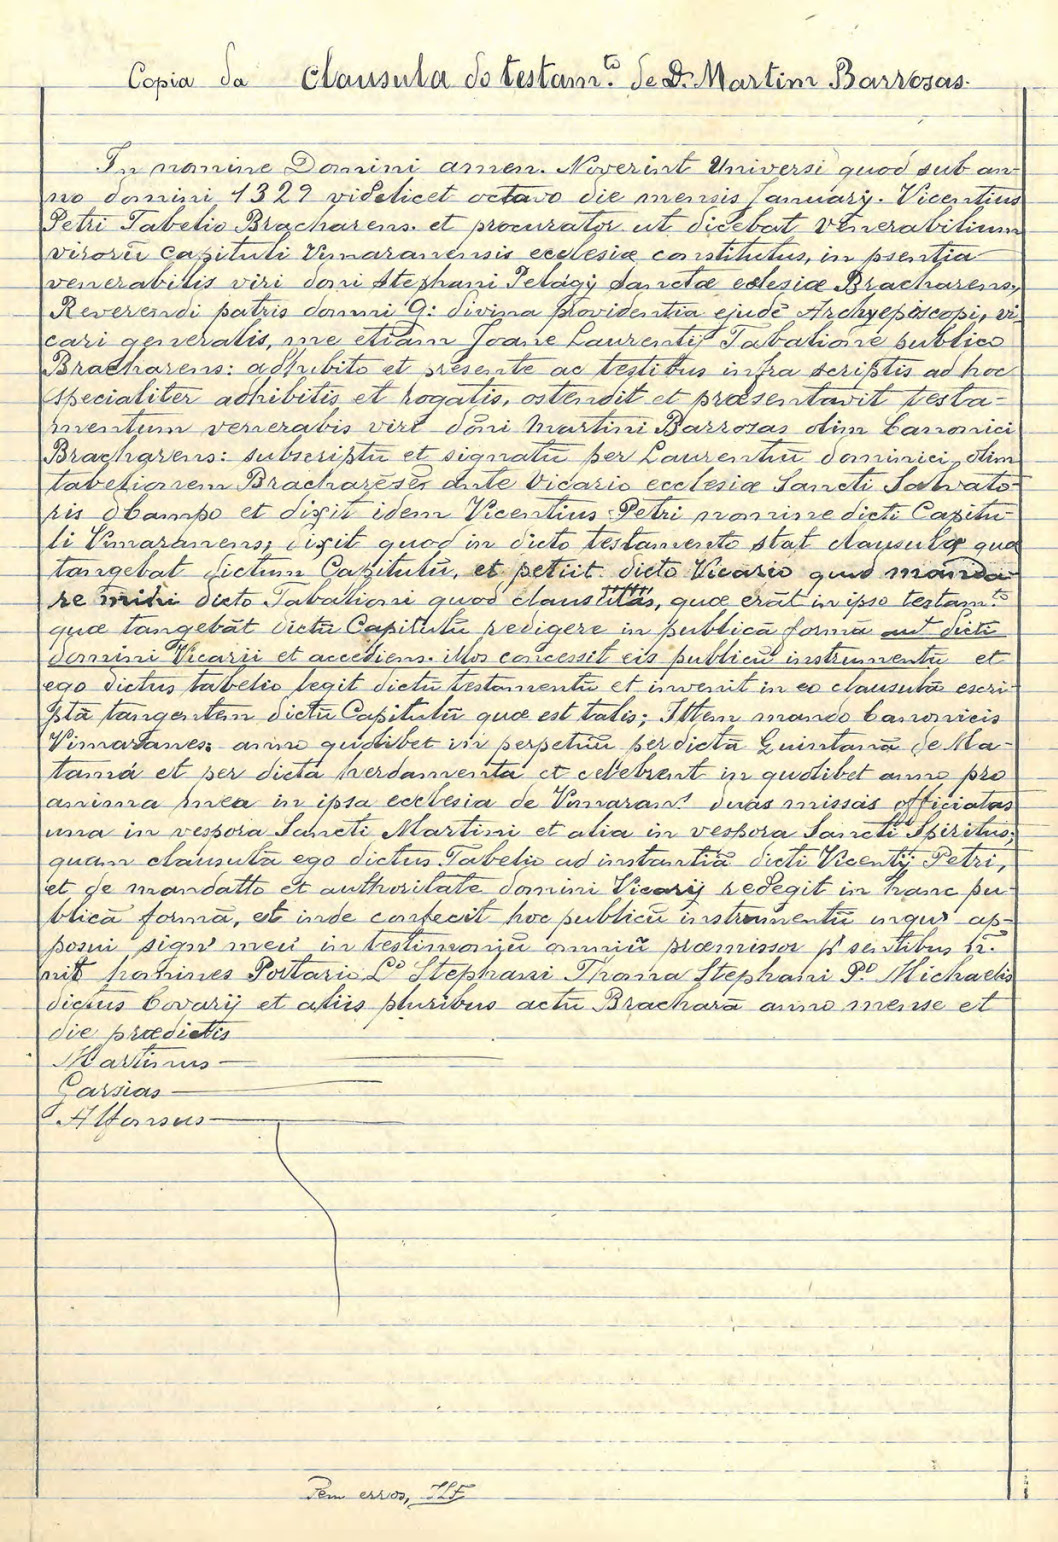 Copia da Clausula do testam.to de D. Martim Barrosas.
In nomine Domini amen. Noverint Universi quod sub an-
no domini 1329 videlicet octavo die mensis Januarÿ. Vicentius
Petri Tabelio Bracharens. et procurator ut dicebat venerabilium
virorū Capituli Vimaranensis ecclesiæ constitutus, in psentia
venerabilis viri dom̄i Stephani Pelagÿ Sanctæ eclesiæ Bracharens,
Reverendi patris domni G: divina providentia ejudē Archyepiscopi, vi-
cari generalis, me etiam Joane Laurentÿ Tabalione publico
Bracharens: adhibito et presente ac testibus infra scriptis ad hoc
specialiter adhibitis et rogatis, ostendit et præsentavit testa-
mentum venerabis viri dōni Martini Barrosas olim Canonici
Bracharens: subscriptū et signatū per Laurentiū dominici olim
tabelionem Brachareses ante Vicario ecclesiæ Sancti Salvato-
ris do Campo et dixit idem Vicentius Petri nomine dicti Capitu-
li Vimaranens; dixit quod in dicto testamento stat clausula qua
tangebat dictum Capitulū, et petiit dicto Vicario quod manda-
re mihi dicto Tabalioni quod, quæ erāt in ipso testam.to
quæ tangebāt dictū Capitulū redigere in publicā formā aut dicti
domini Vicarii et accediens. illos concessit eis publicū instrumentū et
ego dictus tabelio legit dictū testamentū et invenit in eo clausulā escri-
ptā tangentem dictū Capitulū quæ est talis; Ittem mando Canonicis
Vimaranes: anno quolibet in perpetuū per dictā Quintanā de Ma-
tamá et per dicta herdamenta et celebrent in quolibet anno pro
anima mea in ipsa ecclesia de Vimarans duas missas officiatas
una in vespora Sancti Martini et alia in vespora Sancti Spiritus;
quam clausulā ego dictus Tabelio ad instantiā dicti Vicentÿ Petri,
et de mandatto et authoritate domini Vicarÿ redegit in hanc pu-
blicā formā, et inde confecit hoc publicū instrumentū in ap-
posui sign meu in testimoniū omniū præmissor sentibus
homines Portario, L.do Stephani Thoma Stephani P.o Michaelis
dictus Covarÿ et aliis pluribus actū Bracharā anno mense et
die prædictis
Martinus
Garsias
Alfonsus
Pem erros, JLF